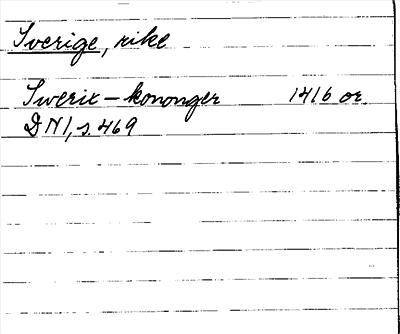 Sverige, rike
Swerix – kononger 1416 or.
DN I, s. 469